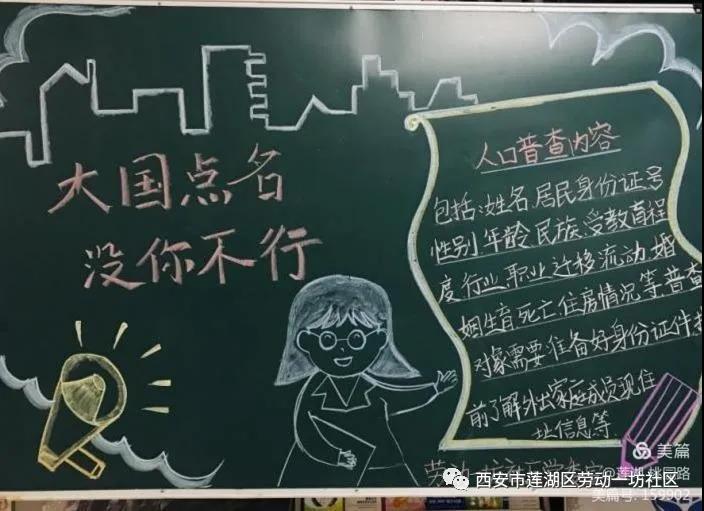 大国点名
没你不行
人口普查内容
包括:姓名、居民身份证号
性别、年龄、民族、受教育程
度、行业、职业、迁移流动、婚
姻生育、死亡、住房情况等,普查
对象需要准备好身份证件提
前了解外出家庭成员现住
址信息等
美篇
@莲湖桃园路
西安市莲湖区劳动一坊社区
美篇号: 159902